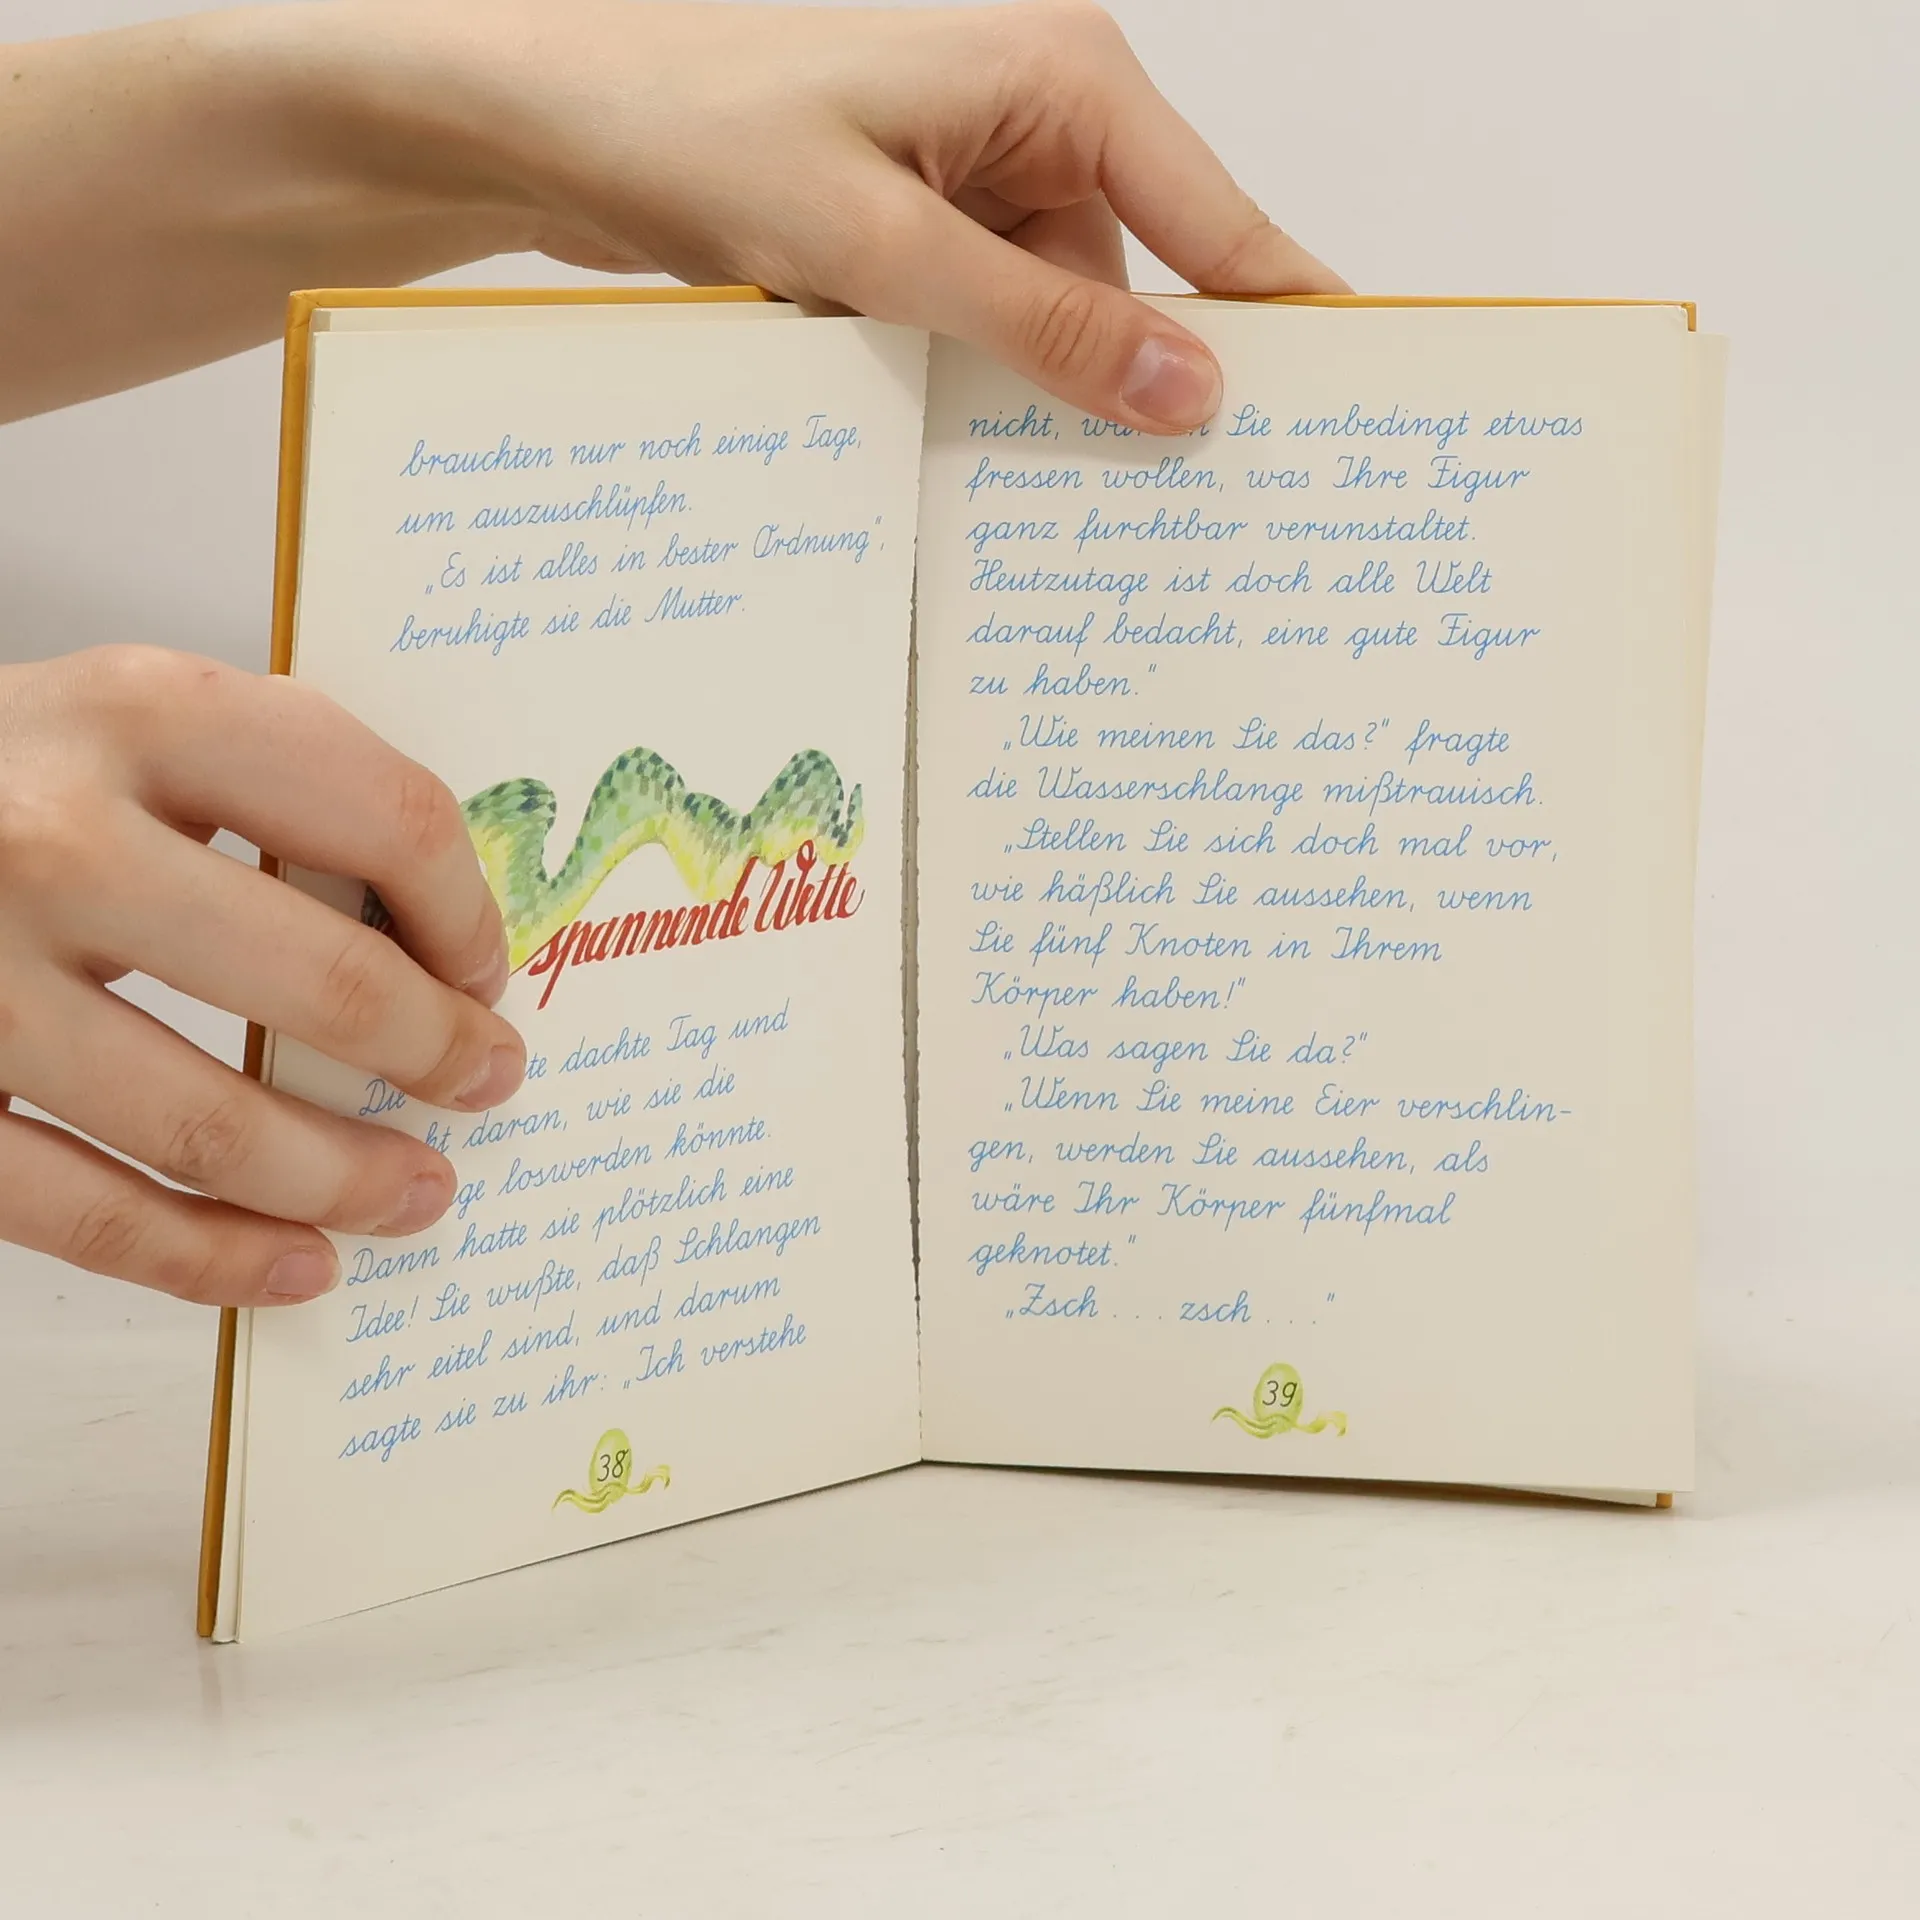 brauchten nur noch einige Tage,
um auszuschlüpfen.
„Es ist alles in bester Ordnung",
beruhigte sie die Mutter.
spannende Wette
Die te dachte Tag und
ht daran, wie sie die
ge loswerden könnte.
Dann hatte sie plötzlich eine
Idee! Sie wußte, daß Schlangen
sehr eitel sind, und darum
sagte sie zu ihr: „Ich verstehe
38
nicht, Sie unbedingt etwas
fressen wollen, was Ihre Figur
ganz furchtbar verunstaltet.
Heutzutage ist doch alle Welt
darauf bedacht, eine gute Figur
zu haben."
„Wie meinen Sie das?" fragte
die Wasserschlange mißtrauisch.
„Stellen Sie sich doch mal vor,
wie häßlich Sie aussehen, wenn
Sie fünf Knoten in Ihrem
Körper haben!"
„Was sagen Sie da?"
„Wenn Sie meine Eier verschlin-
gen, werden Sie aussehen, als
wäre Ihr Körper fünfmal
geknotet."
„Zsch . . . zsch . . ."
39